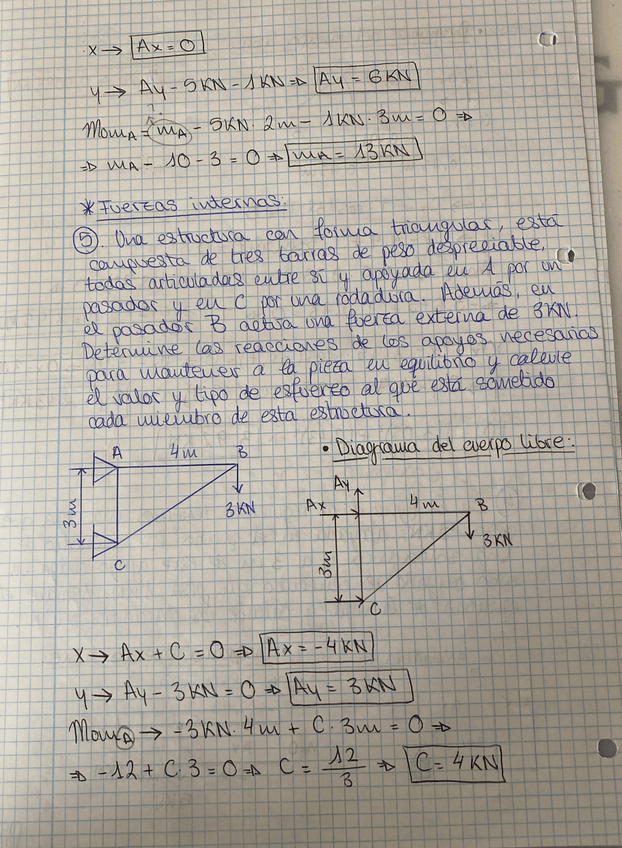 x → Ax = 0
y → Ay - 5KN - 1KN ⇒ Ay = 6KN
MomA = mA - 5KN · 2m - 1KN · 3m = 0 ⇒
⇒ mA - 10 - 3 = 0 ⇒ mA = 13KN
* Fuerzas internas:
⑤. Una estructura con forma triangular, está
compuesta de tres barras de peso despreciable,
todas articuladas entre sí y apoyada en A por un
pasador y en C por una rodadura. Además, en
el pasador B actúa una fuerza externa de 3KN.
Determine las reacciones de los apoyos necesarias
para mantener a la pieza en equilibrio y calcule
el valor y tipo de esfuerzo al que está sometido
cada miembro de esta estructura.
• Diagrama del cuerpo libre:
A 4m B
3m
3KN
C
Ay
Ax 4m B
3KN
3m
C
x → Ax + C = 0 ⇒ Ax = -4KN
y → Ay - 3KN = 0 ⇒ Ay = 3KN
MomA → -3KN · 4m + C · 3m = 0 ⇒
⇒ -12 + C · 3 = 0 ⇒ C = 12/3 ⇒ C = 4KN